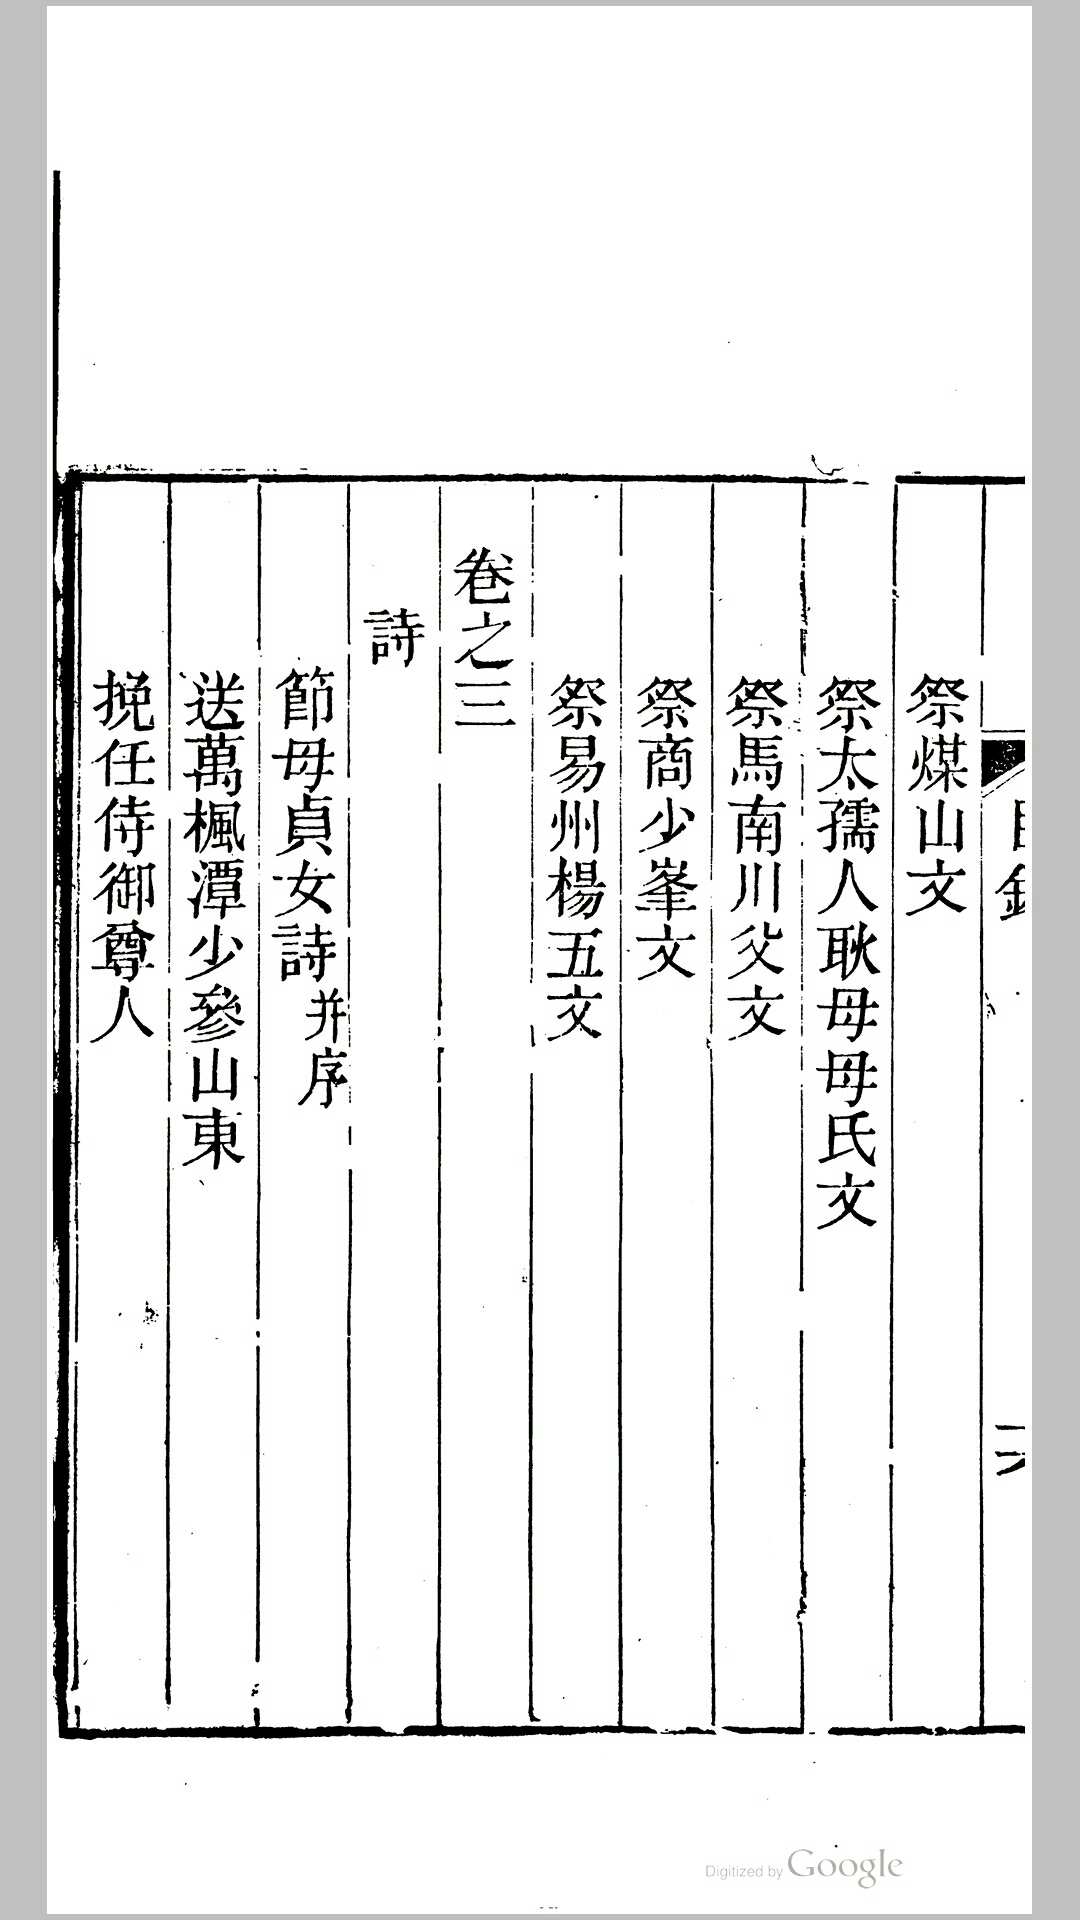 目錄
六
祭煤山文
祭太孺人耿母母氏文
祭馬南川父文
祭商少峯文
祭易州楊五文
卷之三
詩
節母貞女詩并序
送萬楓潭少參山東
挽任侍御尊人
Digitized by Google